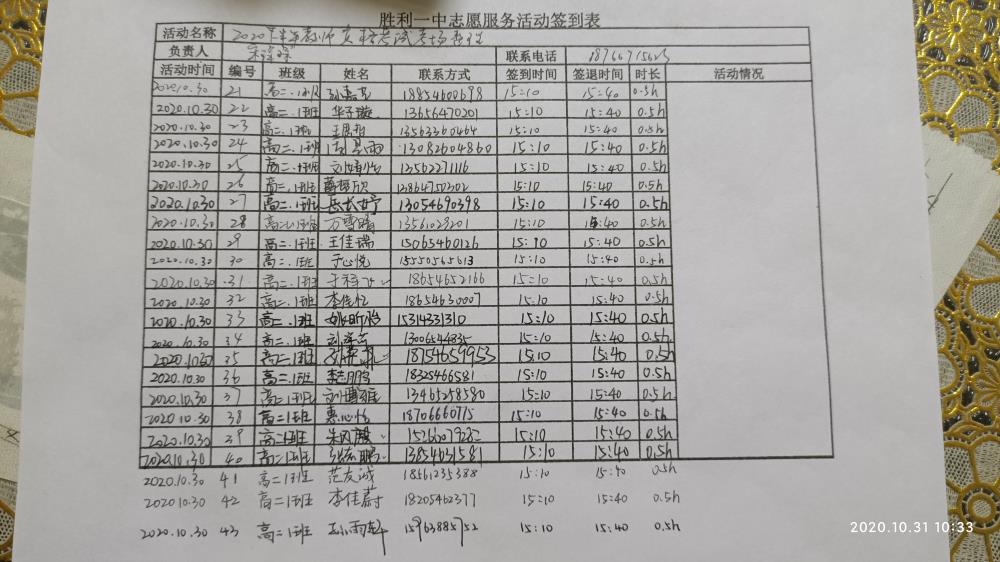 胜利一中志愿服务活动签到表
活动名称 2020下半年教师资格考试考场
负责人 联系电话
活动时间 编号 班级 姓名 联系方式 签到时间 签退时间 时长 活动情况
2020.10.30 21 高二.1班 18854600698 15:10 15:40 0.5h
2020.10.30 22 高二.1班 华子璇 13656470201 15:10 15:40 0.5h
2020.10.30 23 高二.1班 13563360464 15:10 15:40 0.5h
2020.10.30 24 高二.1班 13082604860 15:10 15:40 0.5h
2020.10.30 25 高二.1班 13562271116 15:10 15:40 0.5h
2020.10.30 26 高二.1班 15:10 15:40 0.5h
2020.10.30 27 高二.1班 13054690398 15:10 15:40 0.5h
2020.10.30 28 高二.1班 万雪晴 13561029201 15:10 15:40 0.5h
2020.10.30 29 高二.1班 王佳瑞 15065460126 15:10 15:40 0.5h
2020.10.30 30 高二.1班 于心悦 15550565613 15:10 15:40 0.5h
2020.10.30 31 高二.1班 18654652166 15:10 15:40 0.5h
2020.10.30 32 高二.1班 李佳忆 18654630007 15:10 15:40 0.5h
2020.10.30 33 高二.1班 姚昕怡 15314331310 15:10 15:40 0.5h
2020.10.30 34 高二.1班 13006544835 15:10 15:40 0.5h
2020.10.30 35 高二.1班 18754659953 15:10 15:40 0.5h
2020.10.30 36 高二.1班 18325466581 15:10 15:40 0.5h
2020.10.30 37 高二.1班 刘博雅 13465258580 15:10 15:40 0.5h
2020.10.30 38 高二1班 惠心怡 18706660715 15:10 15:40 0.5h
2020.10.30 39 高二1班 15:10 15:40 0.5h
2020.10.30 40 高二1班 13854631581 15:10 15:40 0.5h
2020.10.30 41 高二1班 范友诚 18561235388 15:10 15:40 0.5h
2020.10.30 42 高二1班 李佳蔚 18205462377 15:10 15:40 0.5h
2020.10.30 43 高二1班 孙雨轩 15963885752 15:10 15:40 0.5h
2020.10.31 10:33